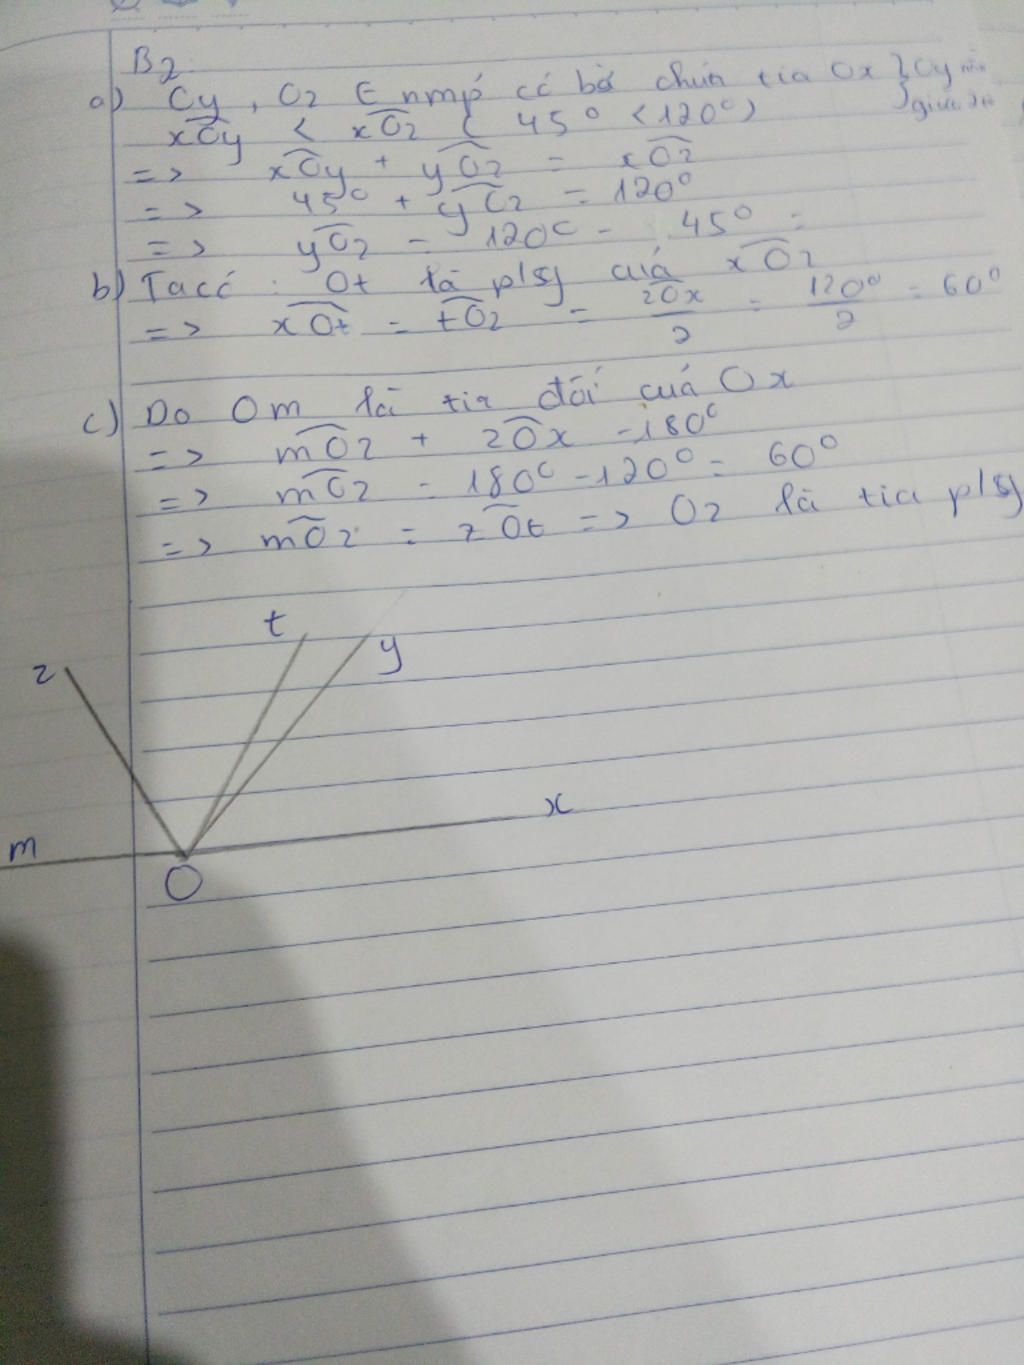 B2
a) Oy, Oz ∈ nmp có bờ chứa tia Ox } Oy nằm
xÔy < xÔz ( 45° < 120° ) } giữa
=> xÔy + yÔz = xÔz
=> 45° + yÔz = 120°
=> yÔz = 120° - 45° =
b) Ta có : Ot là p/g của xÔz
=> xÔt = tÔz = zÔx/2 = 120°/2 = 60°
c) Do Om là tia đối của Ox
=> mÔz + zÔx = 180°
=> mÔz = 180° - 120° = 60°
=> mÔz = zÔt => Oz là tia p/g
t
y
z
x
m
O